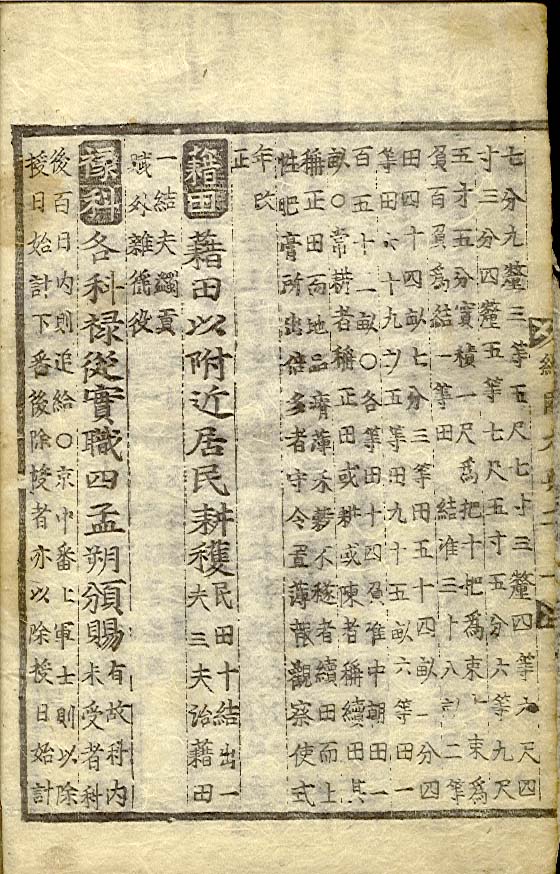 七分九釐三等五尺七寸三釐四等六尺四
寸三分四釐五等七尺五寸五分六等九尺
五寸五分實積一尺爲把十把爲束十束爲
負百負爲結一等田一結准三十八畝二等
田四十四畝七分三等田五十四畝一分四
等田六十九畝五等田九十五畝六等田一
百五十二畝○各等田十四負准中朝田一
畝○常耕者稱正田或耕或陳者稱續田其
稱正田而地品瘠薄禾穀不遂者續田而土
性肥膏所出倍多者守令置簿報觀察使式
年改
正
藉田 藉田以附近居民耕穫 民田十結出一
夫三夫治藉田
一結夫蠲貢
賦外雜徭役
祿科 各科祿從實職四孟朔頒賜 有故科內
未受者科
後百日內則追給○京中番上軍士則以除
授日始計下番後除授者亦以除授日始計